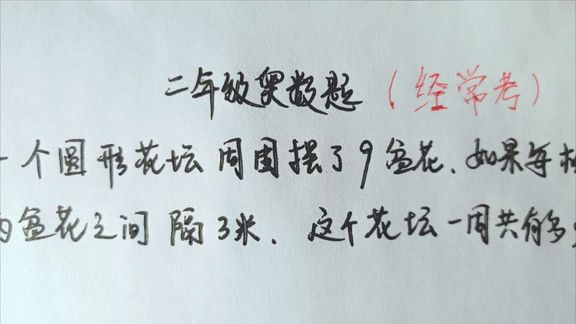 二年级奥数题（经常考）
一个圆形花坛周围摆了9盆花、如果每
盆花之间隔3米、这个花坛一周共有多